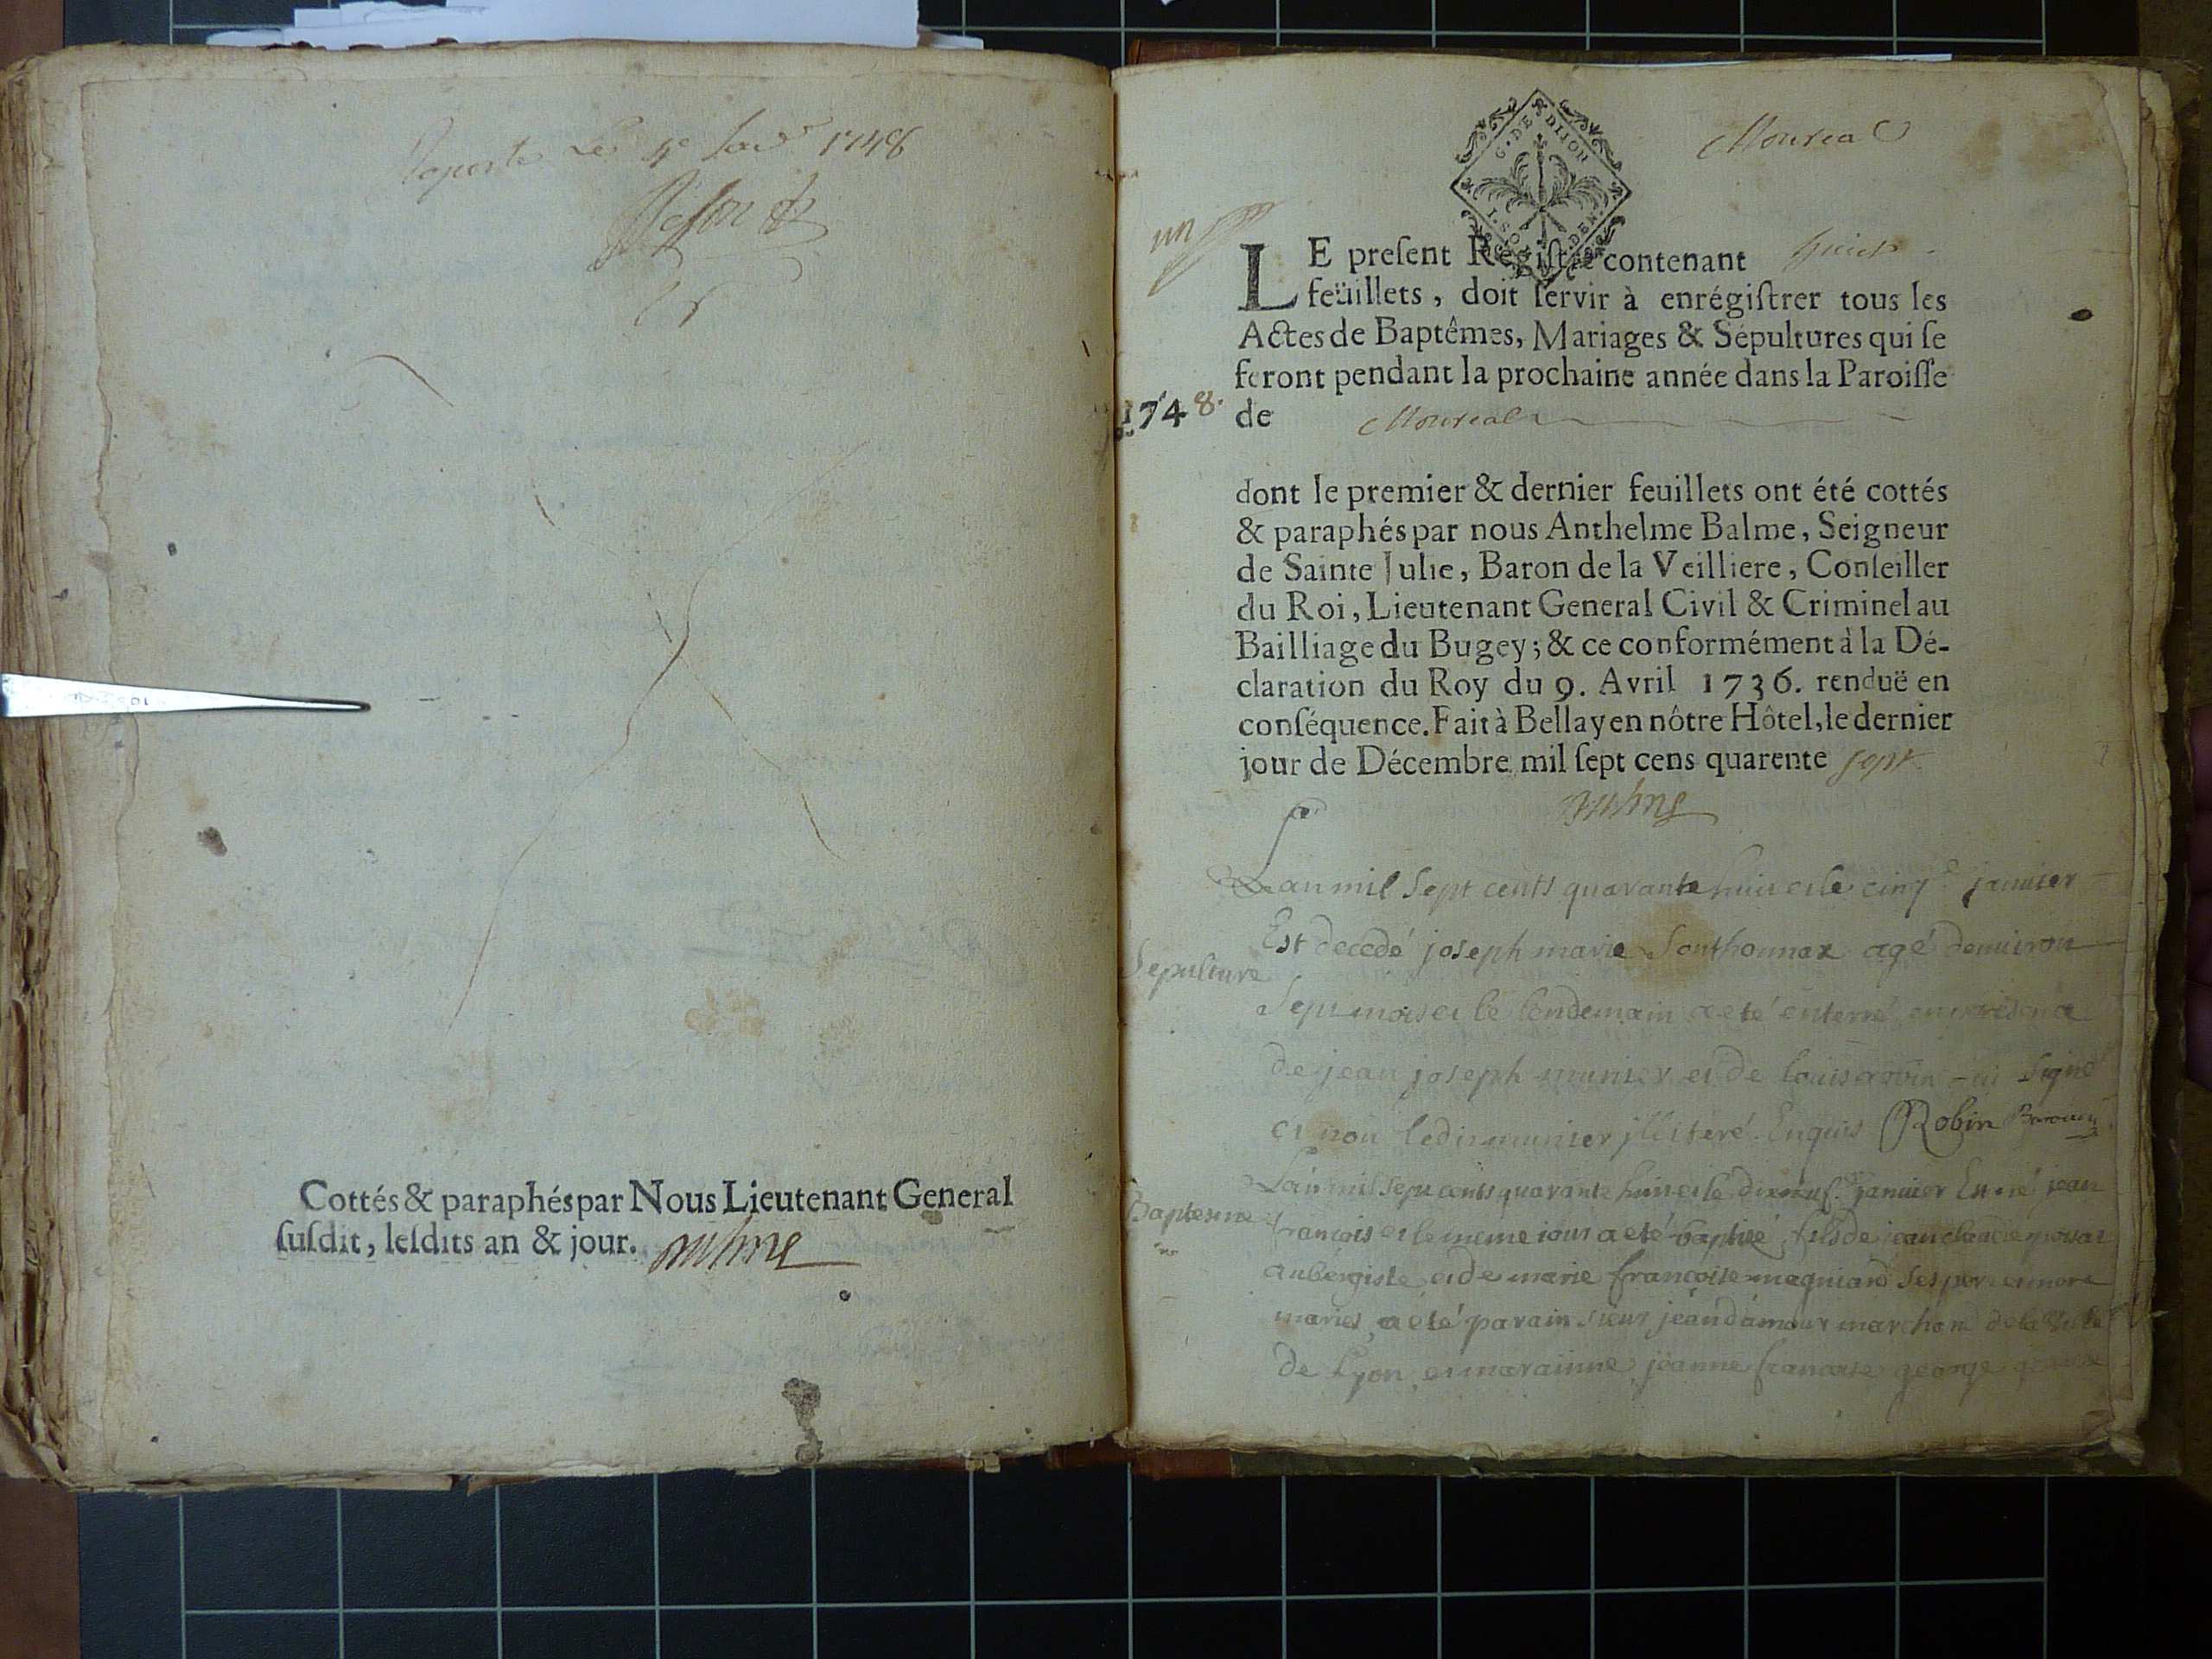 le 4e 1748
Cottés & paraphés par Nous Lieutenant General
suſdit, leſdits an & jour.
Monreal
G. DE DIJON
un
LE preſent Regiſtre contenant huict
feüillets, doit ſervir à enrégiſtrer tous les
Actes de Baptêmes, Mariages & Sépultures qui ſe
feront pendant la prochaine année dans la Paroiſſe
1748.
de Monreal
dont le premier & dernier feuillets ont été cottés
& paraphés par nous Anthelme Balme, Seigneur
de Sainte Julie, Baron de la Veilliere, Conſeiller
du Roi, Lieutenant General Civil & Criminel au
Bailliage du Bugey; & ce conformément à la Dé-
claration du Roy du 9. Avril 1736. renduë en
conſéquence. Fait à Bellay en nôtre Hôtel, le dernier
jour de Décembre mil ſept cens quarente sept
L'an mil sept cents quarante huit et le cinqe janvier
Est decedé joseph marie Southonnax agé denviron
Sepulture
Sept mois et le lendemain a eté enterré en presence
de jean joseph munier et de louis robin qui signé
et non ledit munier illiteré. Enquis Robin
L'an mil sept cents quarante huit et le dixneuf janvier Est né jean
Baptesme
francois et le meme jour a eté baptisé, fils de jean claude
aubergiste et de marie francoise magniard ses pere et mere
mariés, a eté parain sieur jean damour marchand de la ville
de Lyon et maraine jeanne francoise george